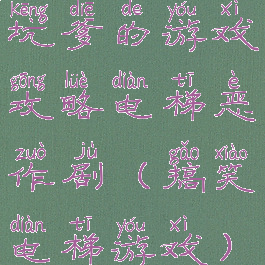 kēng diē de yóu xì
坑爹的游戏
gōng lüè diàn tī è
攻略电梯恶
zuò jù gǎo xiào
作剧（搞笑
diàn tī yóu xì
电梯游戏）